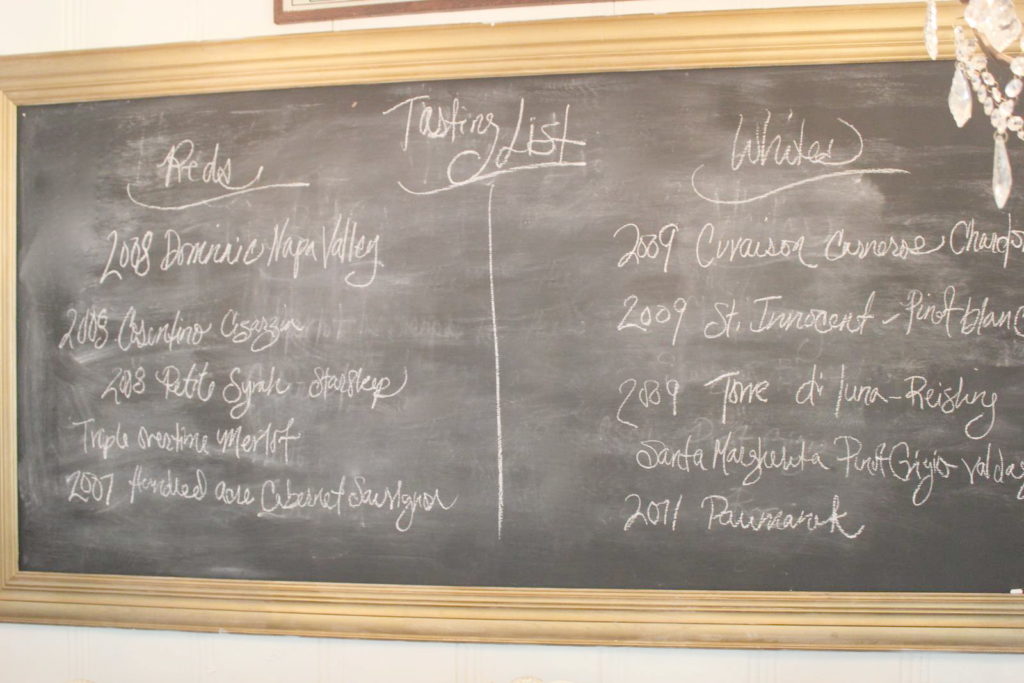 Tasting List
Reds
2008 Dominic Napa Valley
2008 Cosentino Cigarzin
2008 Petit Syrah - Starsleep
Triple overtime Merlot
2007 Hundred acre Cabernet Sauvignon
Whites
2009 Cuvaison Carneros Chardo
2009 St. Innocent - Pinot blanc
2009 Torre di luna - Reisling
Santa Margherita Pinot Grigio Valda
2011 Paumanok